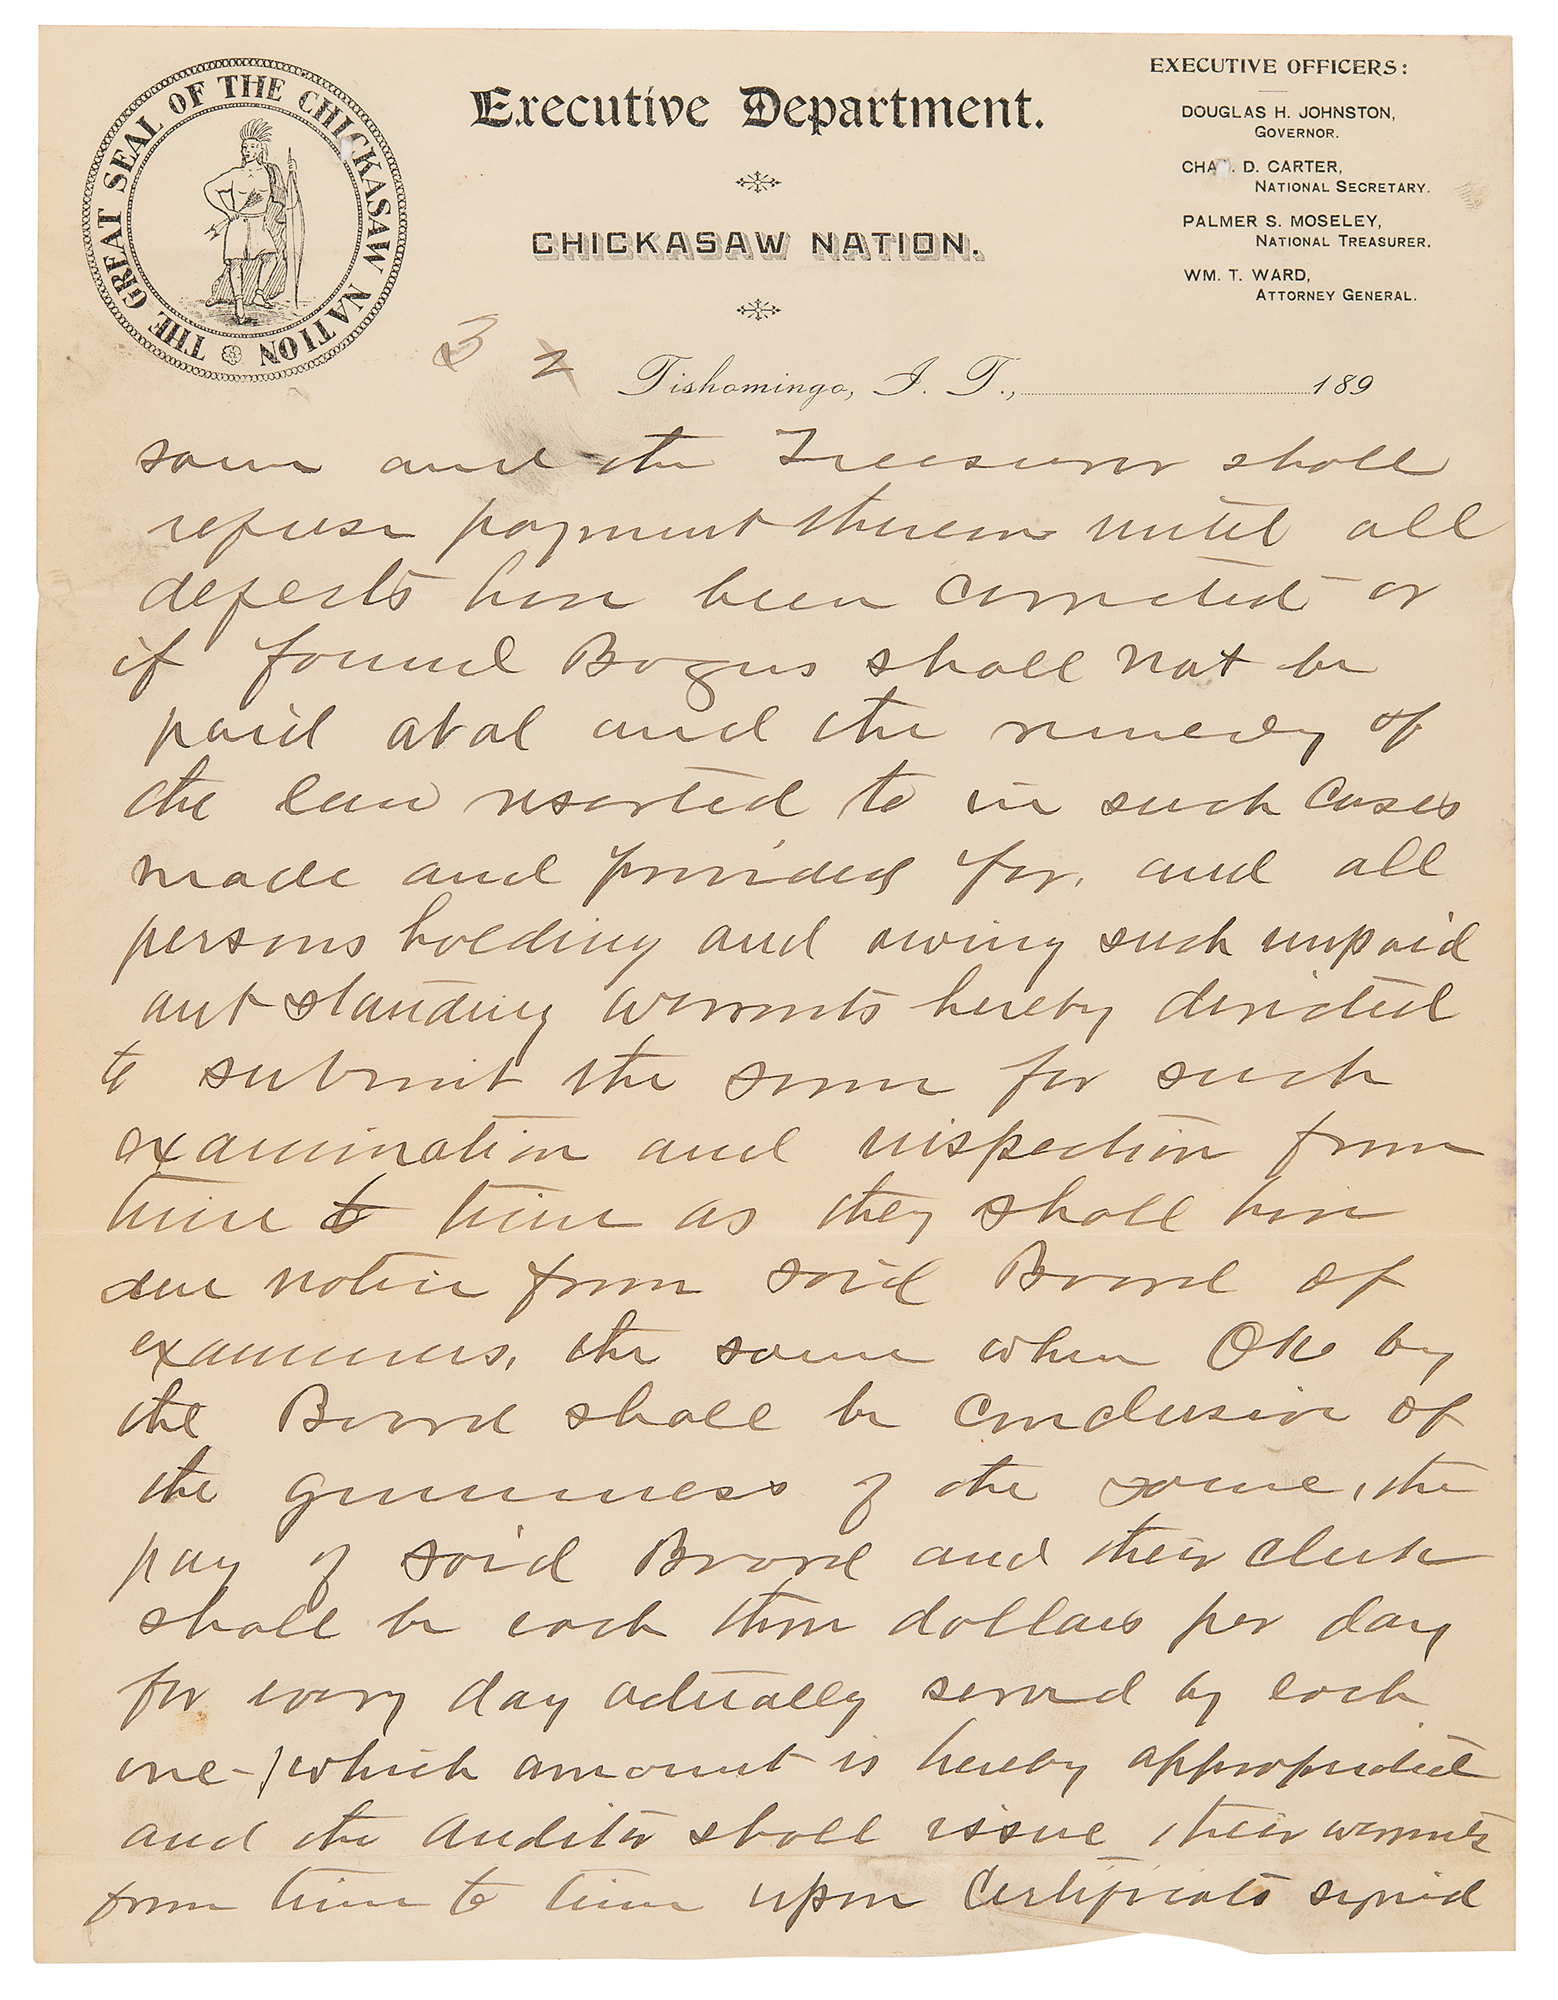 THE GREAT SEAL OF THE CHICKASAW NATION
Executive Department.
CHICKASAW NATION.
EXECUTIVE OFFICERS:
DOUGLAS H. JOHNSTON,
GOVERNOR.
CHAS. D. CARTER,
NATIONAL SECRETARY.
PALMER S. MOSELEY,
NATIONAL TREASURER.
WM. T. WARD,
ATTORNEY GENERAL.
3 2
Tishomingo, I. T., 189
same and the Treasurer shall
refuse payment thereon until all
defects have been corrected or
if found Bogus shall not be
paid atal and the remedy of
the law resorted to in such cases
made and provided for, and all
persons holding and owing such unpaid
out standing warrants hereby directed
to submit the same for such
examination and inspection from
time to time as they shall have
due notice from said Board of
examiners, the same when OK by
the Board shall be conclusive of
the genuineness of the same, the
pay of said Board and their clerk
shall be each three dollars per day
for every day actually served by each
one-/which amount is hereby appropriated
and the auditor shall issue their warrants
from time to time upon Certificats signed